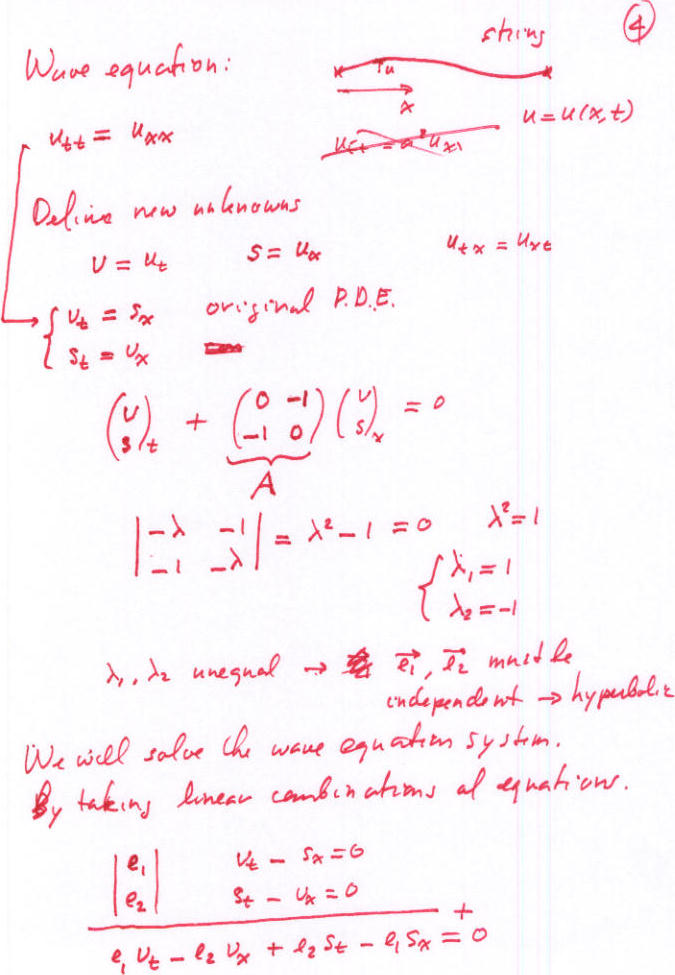 ④
string
Wave equation:
u
x
u = u(x,t)
u_tt = u_xx
Define new unknowns
v = u_t    s = u_x    u_tx = u_xt
{ v_t = s_x    original P.D.E.
{ s_t = v_x
(v s)_t + (0 -1 -1 0) (v s)_x = 0
A
|-λ -1 -1 -λ| = λ² - 1 = 0    λ² = 1
{ λ₁ = 1
{ λ₂ = -1
λ₁, λ₂ unequal → e₁, e₂ must be
independent → hyperbolic
We will solve the wave equation system.
By taking linear combinations of equations.
|e₁|    v_t - s_x = 0
|e₂|    s_t - v_x = 0
+
e₁ v_t - e₂ v_x + e₂ s_t - e₁ s_x = 0